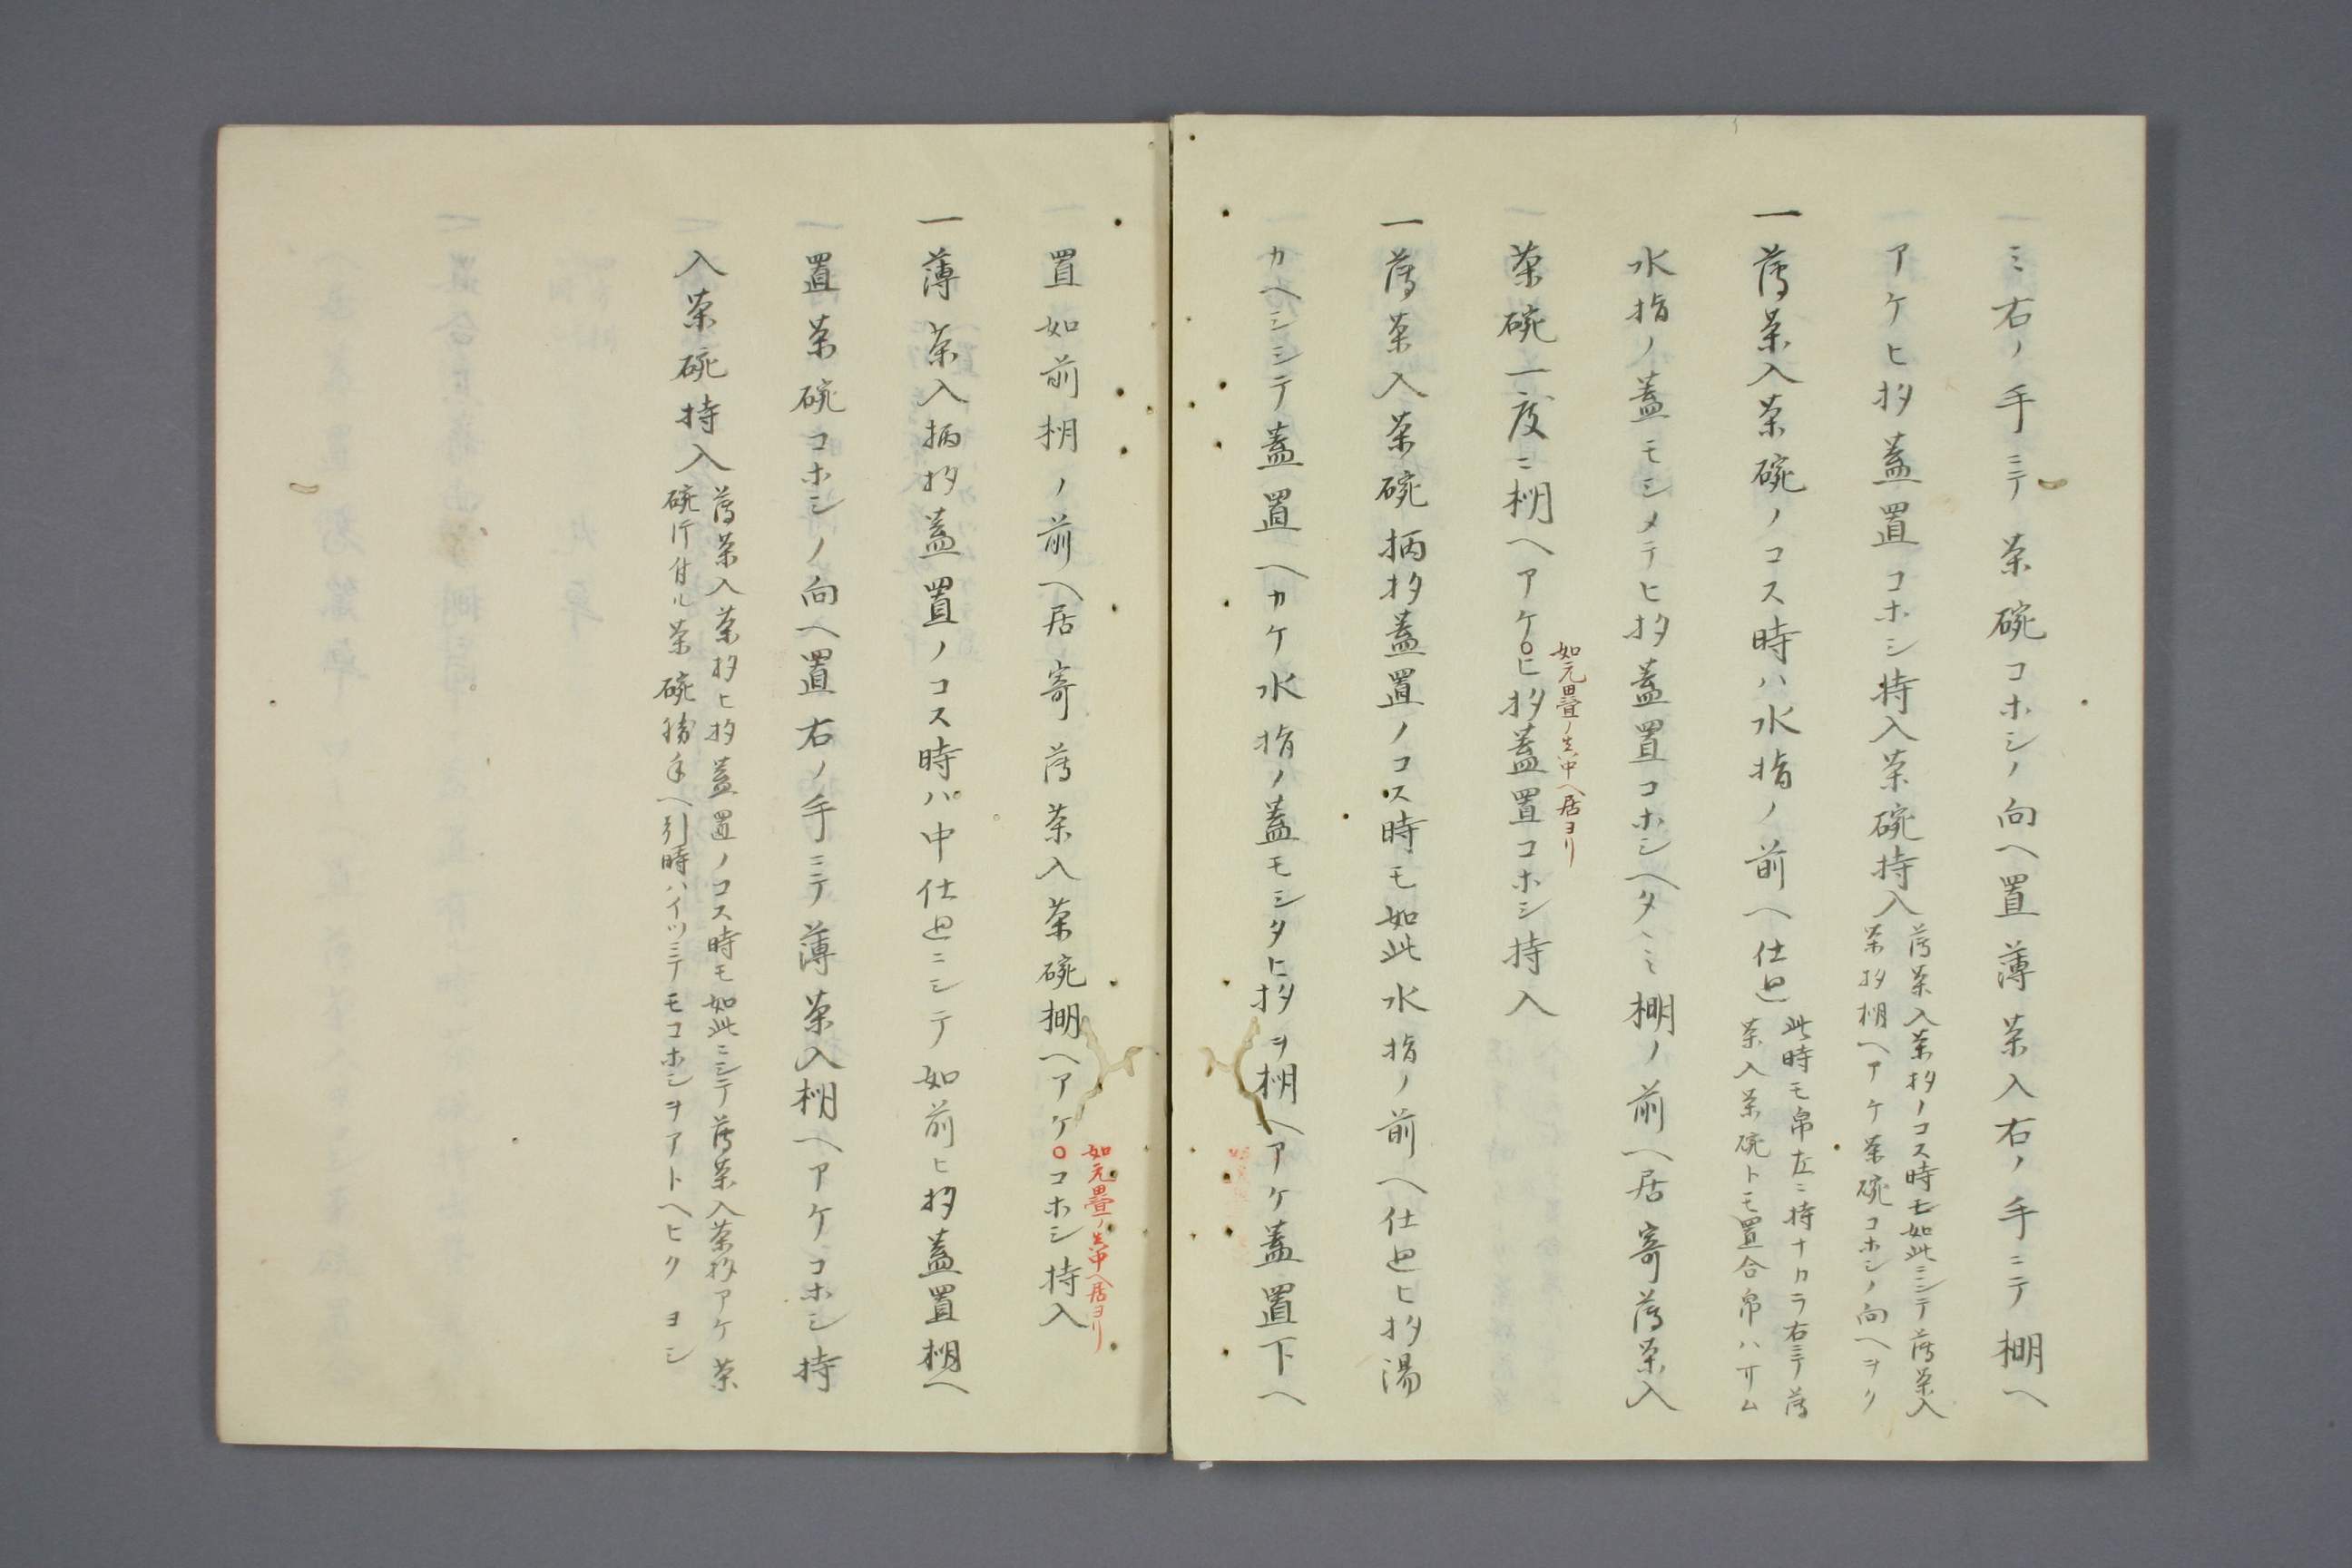 ミ右ノ手ニテ茶碗コホシノ向ヘ置薄茶入右ノ手ニテ棚ヘ
アケヒ杓蓋置コホシ持入茶碗持入
薄茶入茶杓ノコス時モ如此ニシテ薄茶入
茶杓棚ヘアケ茶碗コホシノ向ヘヲク
一薄茶入茶碗ノコス時ハ水指ノ前ヘ仕廻
此時モ帛左ニ持ナカラ右ニテ薄
茶入茶碗トモ置合帛ハサム
水指ノ蓋モシメテヒ杓蓋置コホシヘタヽミ棚ノ前ヘ居寄薄茶入
茶碗一度ニ棚ヘアケ○ヒ杓蓋置コホシ持入
如元畳ノ真中ヘ居ヨリ
一薄茶入茶碗柄杓蓋置ノコス時モ如此水指ノ前ヘ仕廻ヒ杓湯
カヘシシテ蓋置ヘカケ水指ノ蓋モシタヒ杓ヲ棚ヘアケ蓋置下ヘ
置如前棚ノ前ヘ居寄薄茶入茶碗棚ヘアケ○コホシ持入
如元畳ノ真中ヘ居ヨリ
一薄茶入柄杓蓋置ノコス時ハ中仕廻ニシテ如前ヒ杓蓋置棚ヘ
置茶碗コホシノ向ヘ置右ノ手ニテ薄茶入棚ヘアケコホシ持
入茶碗持入
薄茶入茶杓ヒ杓蓋置ノコス時モ如此ニシテ薄茶入茶杓アケ茶
碗片付ル茶碗勝手ヘ引時ハイツニテモコホシヲアトヘヒクヨシ